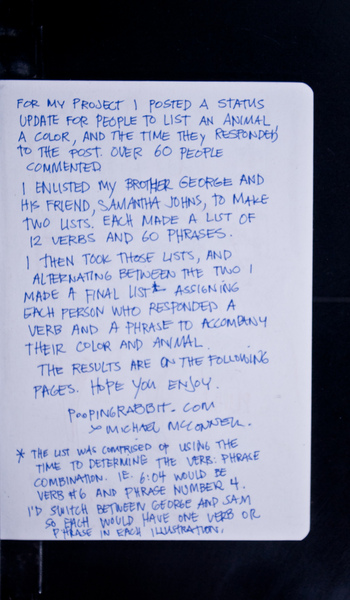 FOR MY PROJECT I POSTED A STATUS
UPDATE FOR PEOPLE TO LIST AN ANIMAL
A COLOR, AND THE TIME THEY RESPONDED
TO THE POST. OVER 60 PEOPLE
COMMENTED
I ENLISTED MY BROTHER GEORGE AND
HIS FRIEND, SAMANTHA JOHNS, TO MAKE
TWO LISTS. EACH MADE A LIST OF
12 VERBS AND 60 PHRASES.
I THEN TOOK THOSE LISTS, AND
ALTERNATING BETWEEN THE TWO I
MADE A FINAL LIST* ASSIGNING
EACH PERSON WHO RESPONDED A
VERB AND A PHRASE TO ACCOMPANY
THEIR COLOR AND ANIMAL.
THE RESULTS ARE ON THE FOLLOWING
PAGES. HOPE YOU ENJOY.
POOPINGRABBIT.COM
MICHAEL MCCONNELL.
* THE LIST WAS COMPRISED OF USING THE
TIME TO DETERMINE THE VERB: PHRASE
COMBINATION. IE: 6:04 WOULD BE
VERB #6 AND PHRASE NUMBER 4.
I'D SWITCH BETWEEN GEORGE AND SAM
SO EACH WOULD HAVE ONE VERB OR
PHRASE IN EACH ILLUSTRATION.